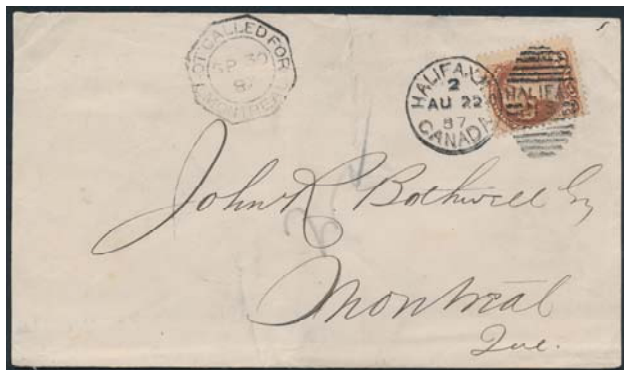 NOT CALLED FOR
SP 30
87
MONTREAL
HALIFAX
2
AU 22
87
CANADA
HALIFAX
John R. Bothwell Esq
Montreal
Que.